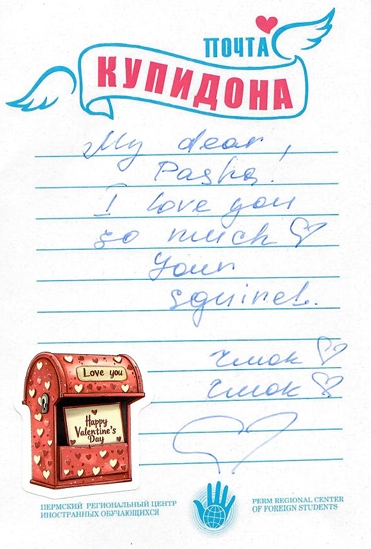 ПОЧТА
КУПИДОНА
My dear,
Pasha.
I love you
so much
Your
squirel.
чмок
чмок
Love you
Happy
Valentine's
Day
ПЕРМСКИЙ РЕГИОНАЛЬНЫЙ ЦЕНТР
ИНОСТРАННЫХ ОБУЧАЮЩИХСЯ
PERM REGIONAL CENTER
OF FOREIGN STUDENTS